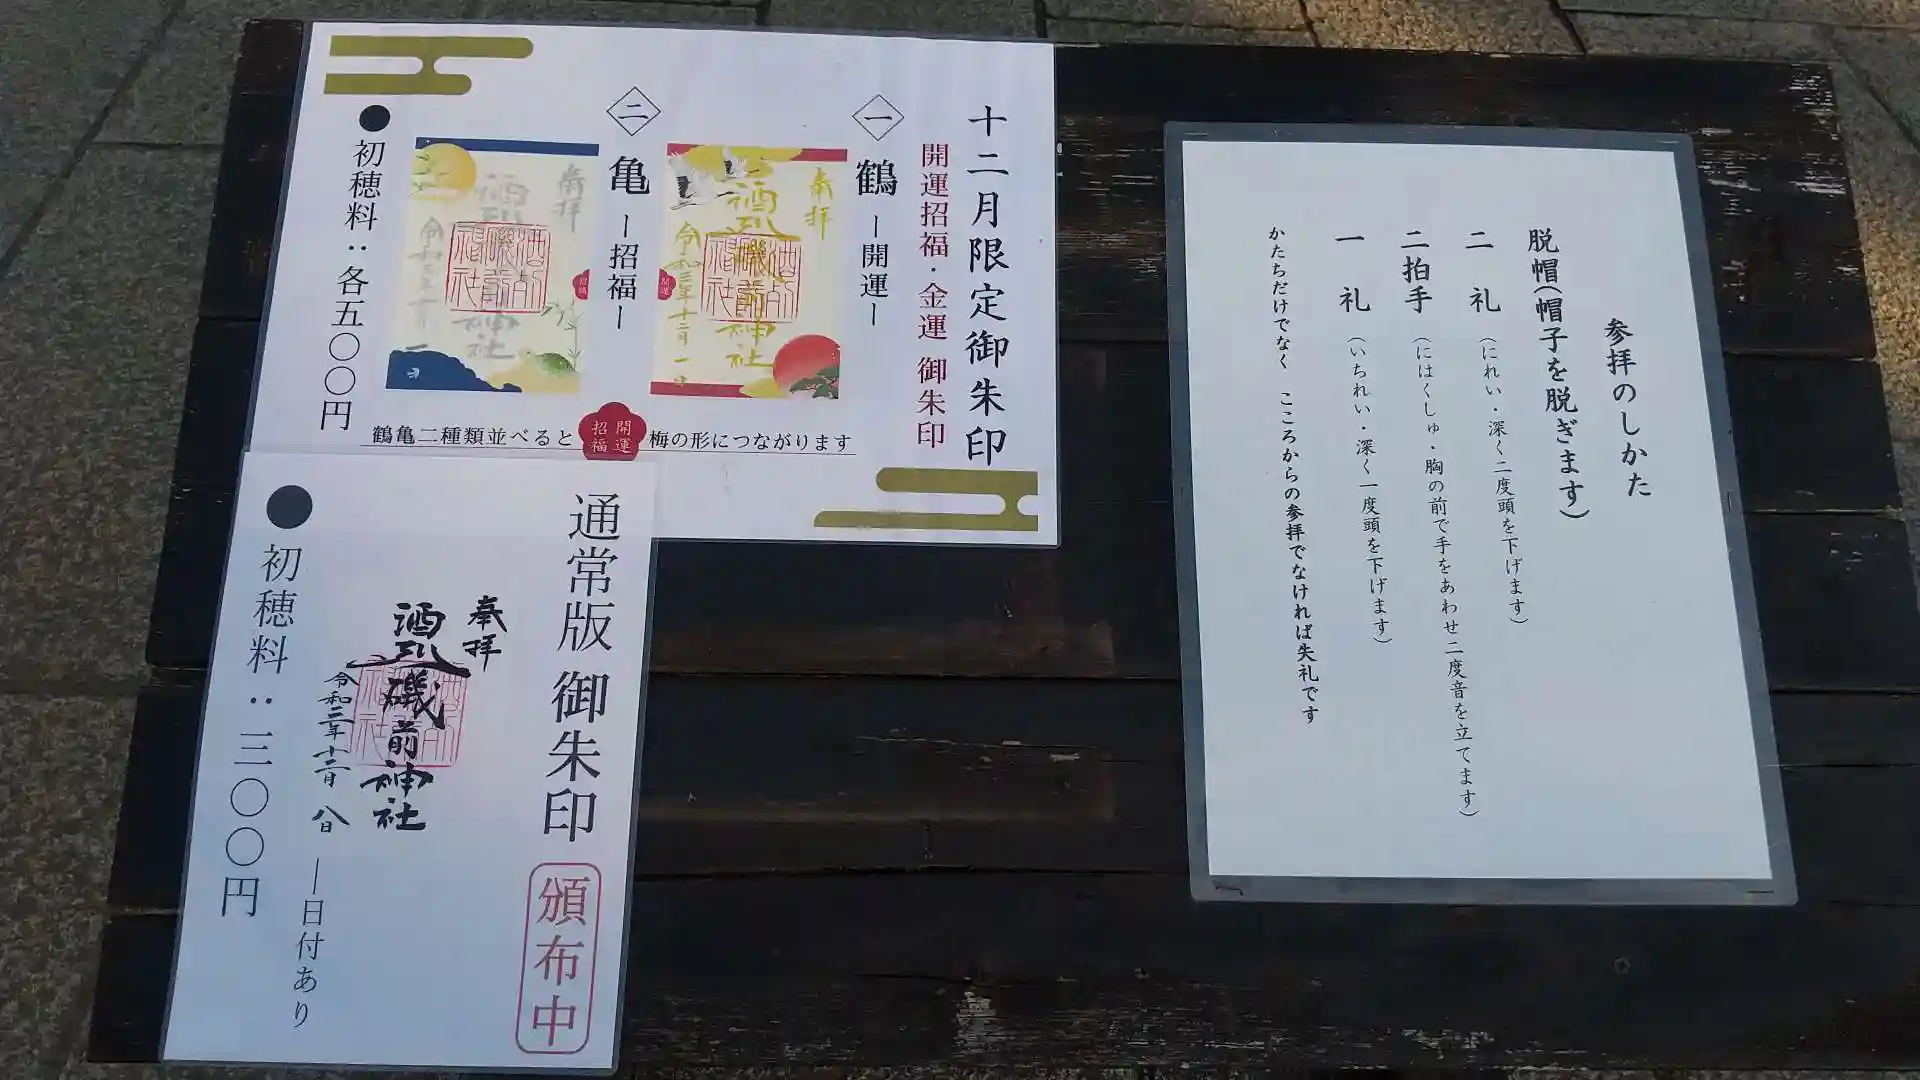 十二月限定御朱印
開運招福・金運 御朱印
一
鶴 ー開運ー
奉拝
酒列磯前神社
二
亀 ー招福ー
奉拝
酒列磯前神社
●初穂料：各五〇〇円
鶴亀二種類並べると 開運招福 梅の形につながります
通常版 御朱印
頒布中
奉拝
酒列磯前神社
八日
ー日付あり
●初穂料：三〇〇円
参拝のしかた
脱帽(帽子を脱ぎます)
二 礼 (にれい・深く二度頭を下げます)
二拍手 (にはくしゅ・胸の前で手をあわせ二度音を立てます)
一 礼 (いちれい・深く一度頭を下げます)
かたちだけでなく こころからの参拝でなければ失礼です